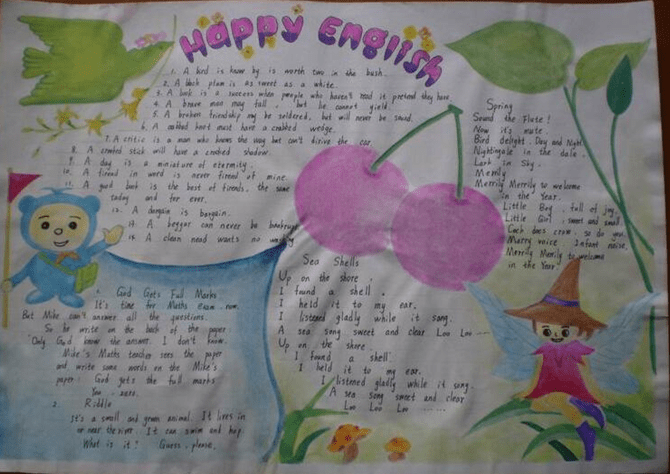 Happy English
1. A bird is know by is worth two in the bush.
2. A black plum is as sweet as a white.
3. A book is a success when people who haven't read it pretend they have.
4. A brave man may fall, but he cannot yield.
5. A broken friendship may be soldered, but will never be sound.
6. A crabbed knot must have a crabbed wedge.
7. A critic is a man who knows the way but can't drive the car.
8. A crooked stick will have a crooked shadow.
9. A day is a miniature of eternity.
10. A firend in word is never firend of mine.
11. A good book is the best of firends, the same
today and for ever.
12. A bargain is bargain.
A beggar can never be bankrupt
A clean hand wants no washing
1. God Gets Full Marks
It's time for Maths exam now.
But Mike can't answer all the questions.
So he write on the back of the paper:
"Only God know the answer. I don't know.
Mike's Maths teacher sees the paper
and write some words on the Mike's
paper: God gets the full marks
You, zero.
2. Riddle
It's a small and green animal. It lives in
or near the river. It can swim and hop.
What is it? Guess, please.
Sea Shells
Up on the shore,
I found a shell,
I held it to my ear.
I listened gladly while it song.
A sea song sweet and clear Loo Loo ----
Up on the shore.
I found a shell.
I held it to my ear.
I listened gladly while it song.
A sea song sweet and clear
Loo Loo Loo ........
Spring
Sound the Flute!
Now it's mute.
Bird delight, Day and Night
Nightingale in the dale.
Lark in Sky.
Merrily
Merrily Merrily to welcome
in the Year.
Little Boy, full of joy,
Little Girl, sweet and small
Cock does crow, so do you,
Merry voice, Infant noise,
Merrily Merrily to welcome
in the Year.